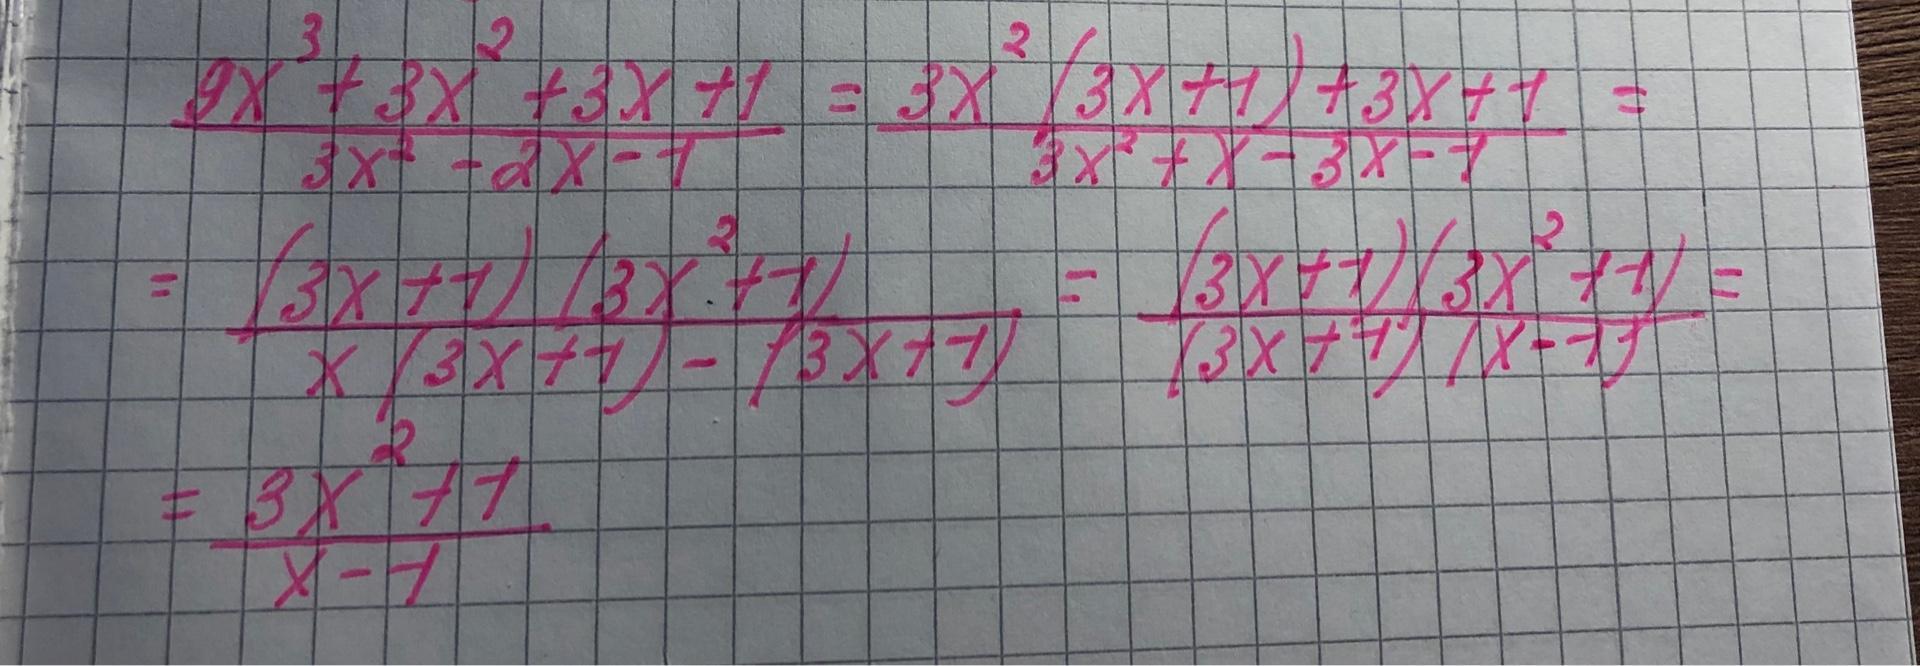 (9x³ + 3x² + 3x + 1)/(3x² - 2x - 1) = (3x²(3x+1) + 3x + 1)/(3x² + x - 3x - 1) =
= ((3x+1)(3x²+1))/(x(3x+1) - (3x+1)) = ((3x+1)(3x²+1))/((3x+1)(x-1)) =
= (3x² + 1)/(x - 1)